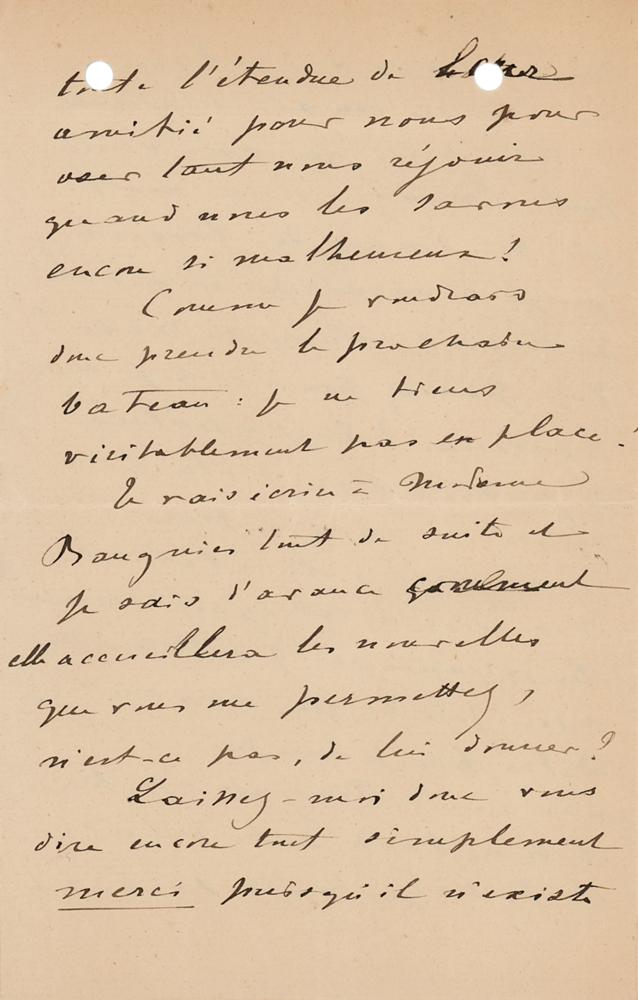 toute l'étendue de leur
amitié pour nous pour
oser tant nous réjouir
quand nous les savons
encore si malheureux !
Comme je voudrais
donc prendre le prochain
bateau : je ne tiens
véritablement pas en place !
Je vais écrire à Madame
Baugnies tout de suite et
je sais d'avance comment
elle accueillera les nouvelles
que vous me permettez,
n'est-ce pas, de lui donner ?
Laissez-moi donc vous
dire encore tout simplement
merci puisqu'il n'existe